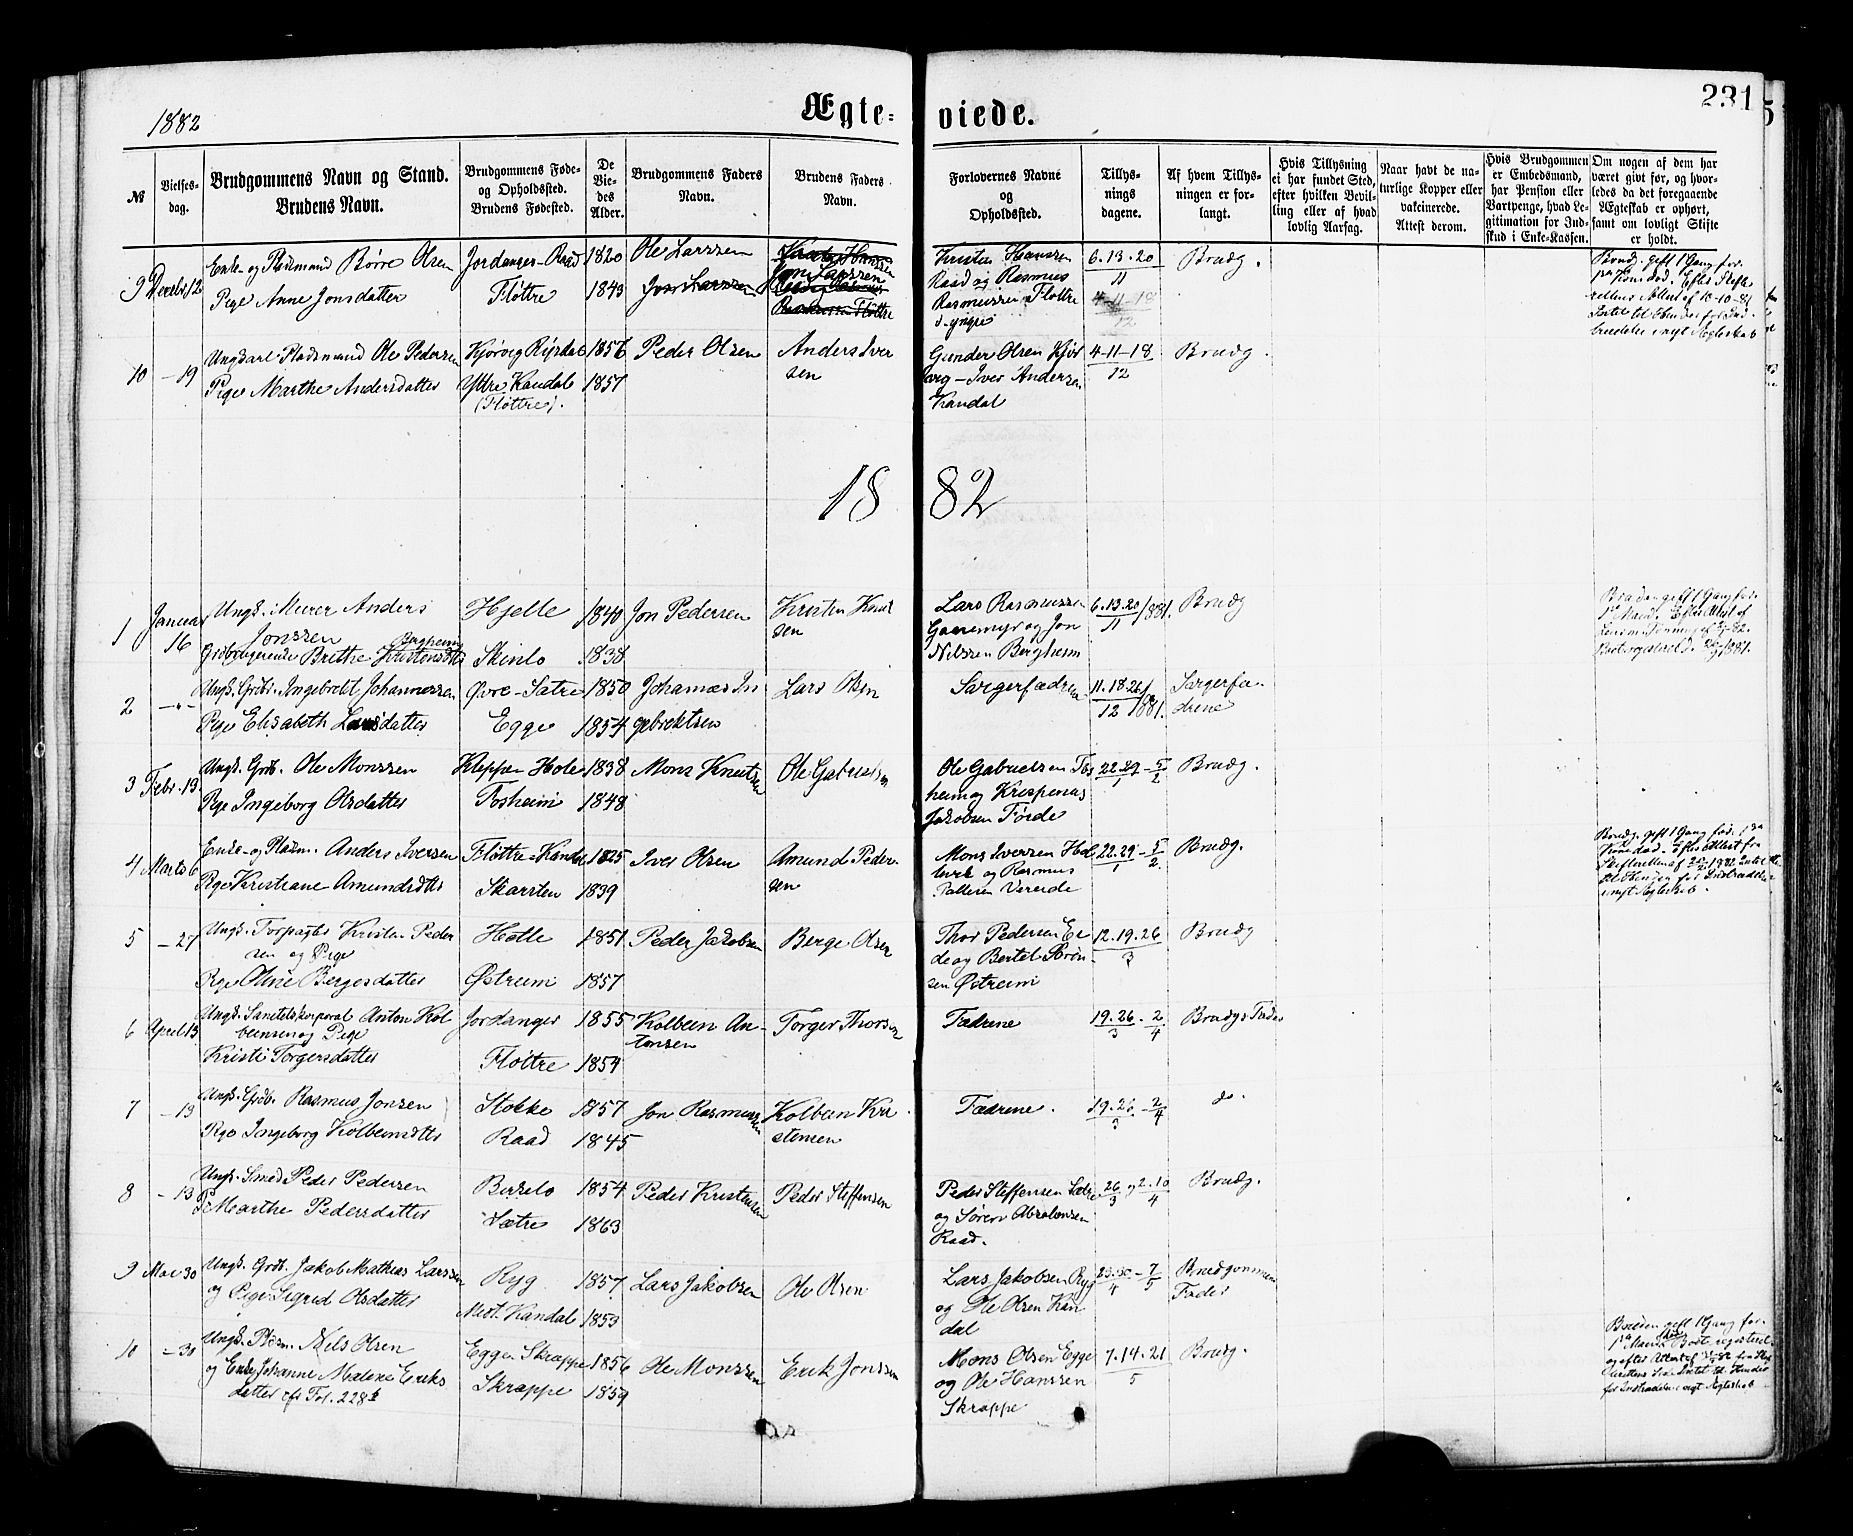 1882
Ægte-
viede.
231
№
Vielses-
dag.
Brudgommens Navn og Stand.
Brudens Navn.
Brudgommens Føde-
og Opholdssted.
Brudens Fødested.
De
Vie-
des
Alder.
Brudgommens Faders
Navn.
Brudens Faders
Navn.
Forlovernes Navne
og
Opholdssted.
Tillys-
nings
dagene.
Af hvem Tillys-
ningen er for-
langt.
Hvis Tillysning
ei har fundet Sted,
efter hvilken Bevil-
ling eller af hvad
lovlig Aarsag.
Naar havt de na-
turlige Kopper eller
vakcinerede.
Attest derom.
Hvis Brudgommen
er Embedsmand,
har Pension eller
Vartpenge, hvad Le-
gitimation for Ind-
skud i Enke-Kassen.
Om nogen af dem har
været givt før, og hvor-
ledes da det foregaaende
Ægteskab er ophørt,
samt om lovligt Skifte
er holdt.
9 Decebr 12
Enke- og Pladsmand Børre Olsen
Pige Anne Jonsdatter
Jordanger-Raad
Fløttre
1820
1843
Ole Larssen
Jon Larssen
Jon Larssen
Kristen Hanssen
Raad og Rasmus
Rasmussen Fløttre
d. yngre
6.13.20
11
4-11-18
12
Brudg.
Brudg. gift 1 Gang før.
10 -19
Ungkarl Pladsmand Ole Pedersen
Pige Marthe Andersdatter
Kjørvig Rysdal
Yttre Kandal
(Fløttre).
1856
1857
Peder Olsen
Anders Iver
sen
Gunder Olsen Kjør
vig - Iver Andersen
Kandal
4-11-18
12
Brudg.
18 82
1 Januar
16
Ungk. Murer Anders
Jonssen
Gidbrugerende Brithe Kristensdtr
Hjelle
Skinlo
1840
1838
Jon Pedersen
Kristen Knut
sen
Lars Rasmussen
Gaaremyr og Jon
Nilssen Bergheim
6.13.20/1881.
11
Brudg
Bruden gift 1 Gang før.
2 -"-
Ungk. Grbr. Ingebrekt Johannessen
Pige Elisabeth Larsdatter
Øvre-Sætre
Egge
1850
1854
Johannes In
gebrektsen
Lars Olsen
Sørgerfædrene
11.18.26/1881.
12
Sørgerfæ-
drene
3 Febr. 13.
Ungk. Grdb. Ole Monssen
Pige Ingeborg Olsdatter
Kleppen Hole
Tosheim
1838
1848
Mons Knutsen
Ole Gabrielsen
Ole Gabrielsen Tos
heim og Krispinus
Jakobsen Førde
22.29 - 5
1 2
Brudg.
4 Marts 6
Enke- og Pladsm. Anders Iversen
Pige Kristiane Amundsdtr
Fløttre-Kandal
Skarsten
1825
1839
Iver Olsen
Amund Peder-
sen
Mons Iverssen Hol
levik og Rasmus
Pallesen Vereide
22.29 - 5
1 2
Brudg.
Brudg. gift 1 Gang før.
5 -27
Ungk. Forpagter Kristen Peder
sen og Pige
Pige Oline Bergesdatter
Holle
Østreim
1851
1857
Peder Jakobsen
Berge Olsen
Thor Pedersen Ei
de og Bertel Sørn-
sen Østreim
12.19.26
3
Brudg
6 April 13
Ungk. Sanitetskorporal Anton Kol
beinsen og Pige
Kristi Torgersdatter
Jordanger
Fløttre
1855
1854
Kolbein An-
tonsen
Torger Thorsen
Fædrene
19.26 - 2
3 4
Brudgs Fader
7 -13
Ungk. Grdb. Rasmus Jonsen
Pige Ingeborg Kolbeinsdtr
Stokke
Raad
1857
1845
Jon Rasmussen
Kolbein Kri
stensen
Fædrene.
19.26 - 2
3 4
do.
8 -13
Ungk. Smed Peder Pedersen
P. Marthe Pedersdatter
Berrelo
Sætre
1854
1863
Peder Kristensen
Peder Steffensen
Peder Steffensen Sætre
og Søren Absalonsen
Raad.
26 og 2.10
3 4
Brudg.
9 Mai 30
Ungk. Grdb. Jakob Mathias Larssen
og Pige Sigrid Olsdatter
Ryg
Midt. Kandal
1857
1853
Lars Jakobsen
Ole Olsen
Lars Jakobsen Ryg
og Ole Olsen Kan
dal
23.30 - 7
4 5
Brudgommens
Fader
10 -30
Ungk. Pldsm. Nils Olsen
og Enke Johanne Malene Eriks
datter cfr Fol. 228b
Egge-Skrappe
Skrappe
1856
1859
Ole Monssen
Erik Jonssen
Mons Olsen Egge
og Ole Hanssen
Skrappe
7.14.21
5
Brudg.
Bruden gift 1 Gang før.